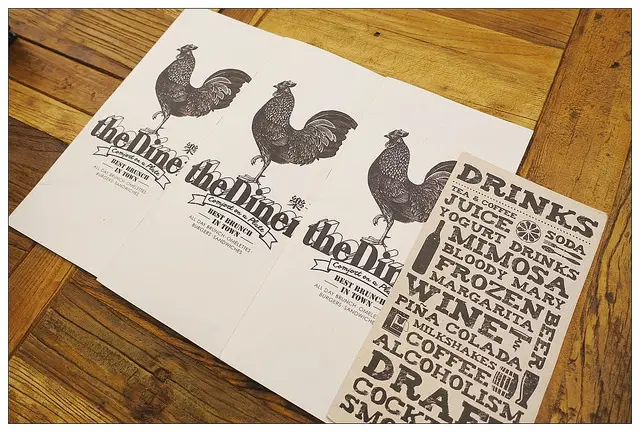 樂
theDine
Comfort on a Plate
BEST BRUNCH
IN TOWN
ALL DAY BRUNCH·OMELETTES
BURGERS·SANDWICHES
樂
theDiner
Comfort on a Plate
BEST BRUNCH
IN TOWN
ALL DAY BRUNCH·OMELETTES
BURGERS·SANDWICHES
theDin
Comfort on a Pla
BEST BRUNCH
IN TOWN
ALL DAY BRUNCH·OMELE
BURGERS·SANDWIC
DRINKS
TEA & COFFEE
JUICE SODA
YOGURT DRINKS
MIMOSA
BLOODY MARY
FROZEN
MARGARITA
WINE BEER
PIÑA COLADA
MILKSHAKES
COFFEE
ALCOHOLISM
DRAF
COCKT
SMO